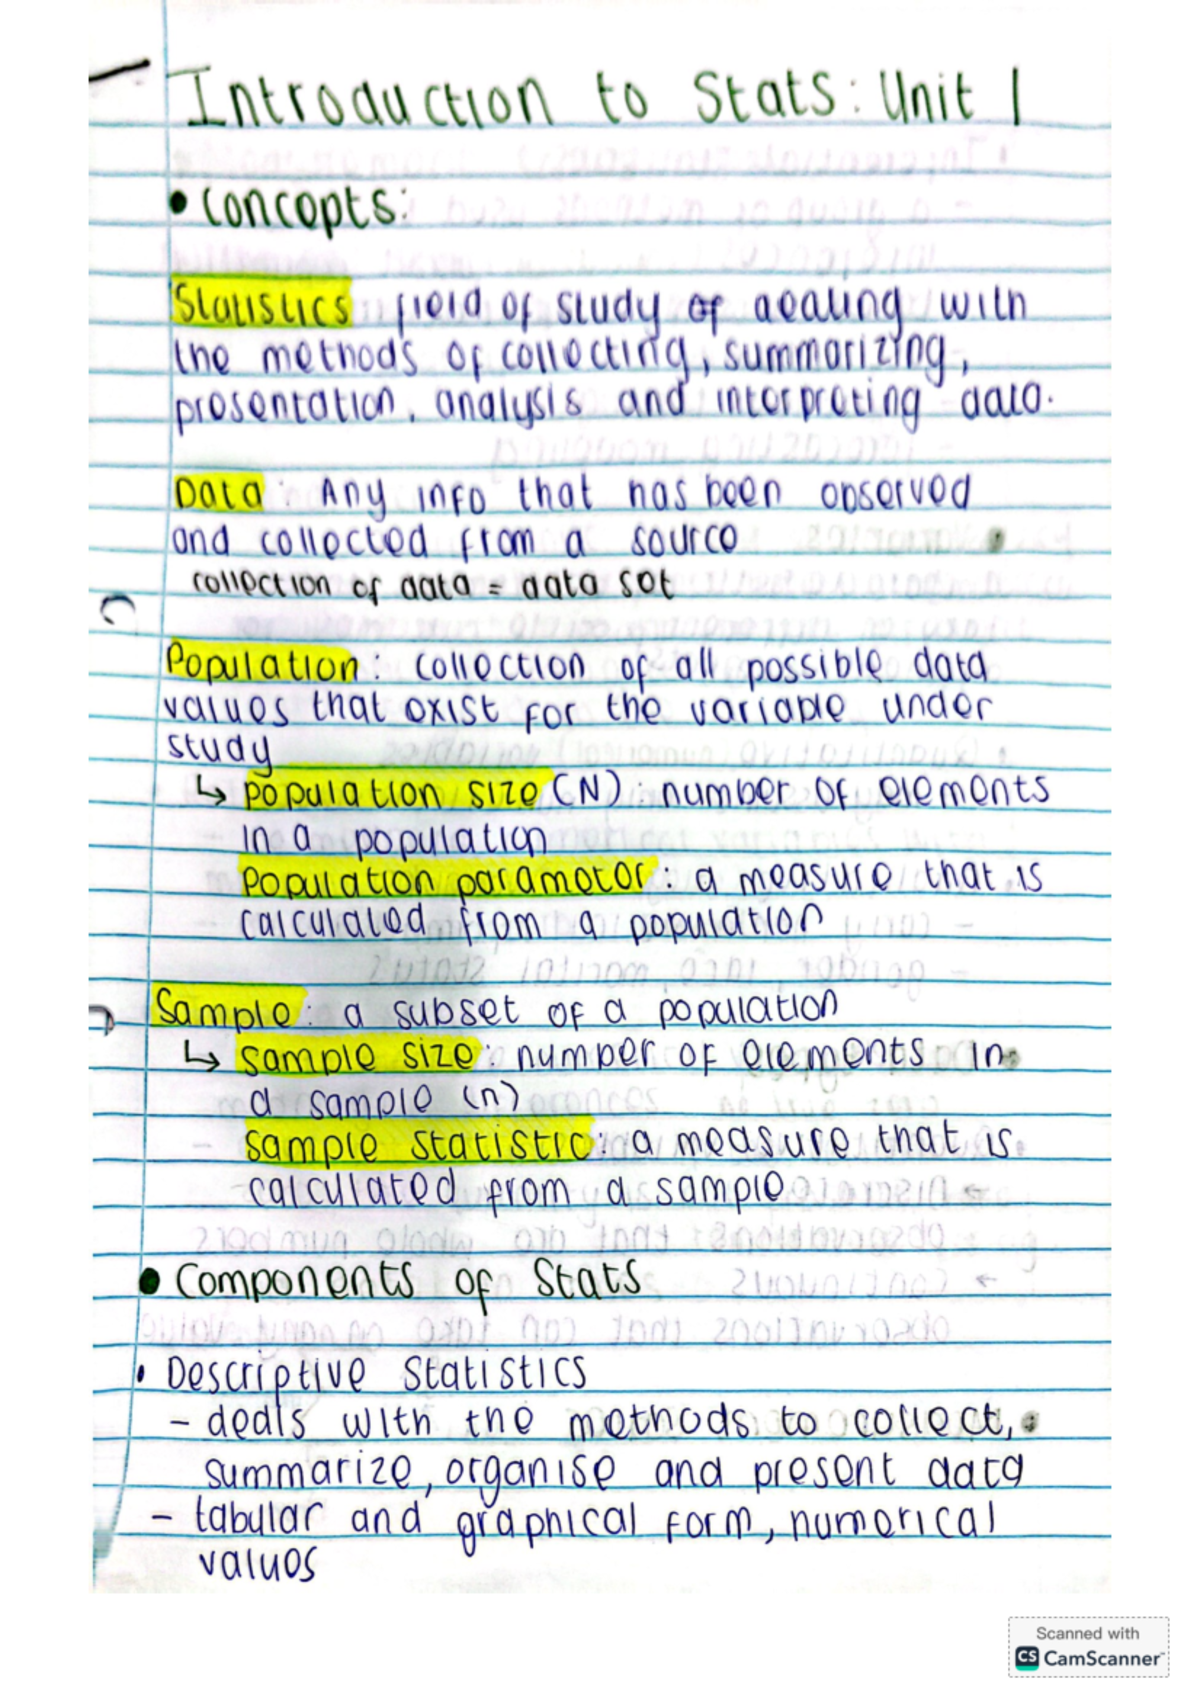 Introduction to Stats: Unit 1
• Concepts:
Statistics field of study of dealing with
the methods of collecting, summarizing,
presentation, analysis and interpreting data.
Data: Any info that has been observed
and collected from a source
collection of data = data set
Population: collection of all possible data
values that exist for the variable under
study
↳ population size (N): number of elements
in a population
Population parameter: a measure that is
calculated from a population
Sample: a subset of a population
↳ sample size: number of elements in
a sample (n)
Sample statistic: a measure that is
calculated from a sample
• Components of Stats
• Descriptive Statistics
- deals with the methods to collect,
summarize, organise and present data
- tabular and graphical form, numerical
values
Scanned with
CS CamScanner